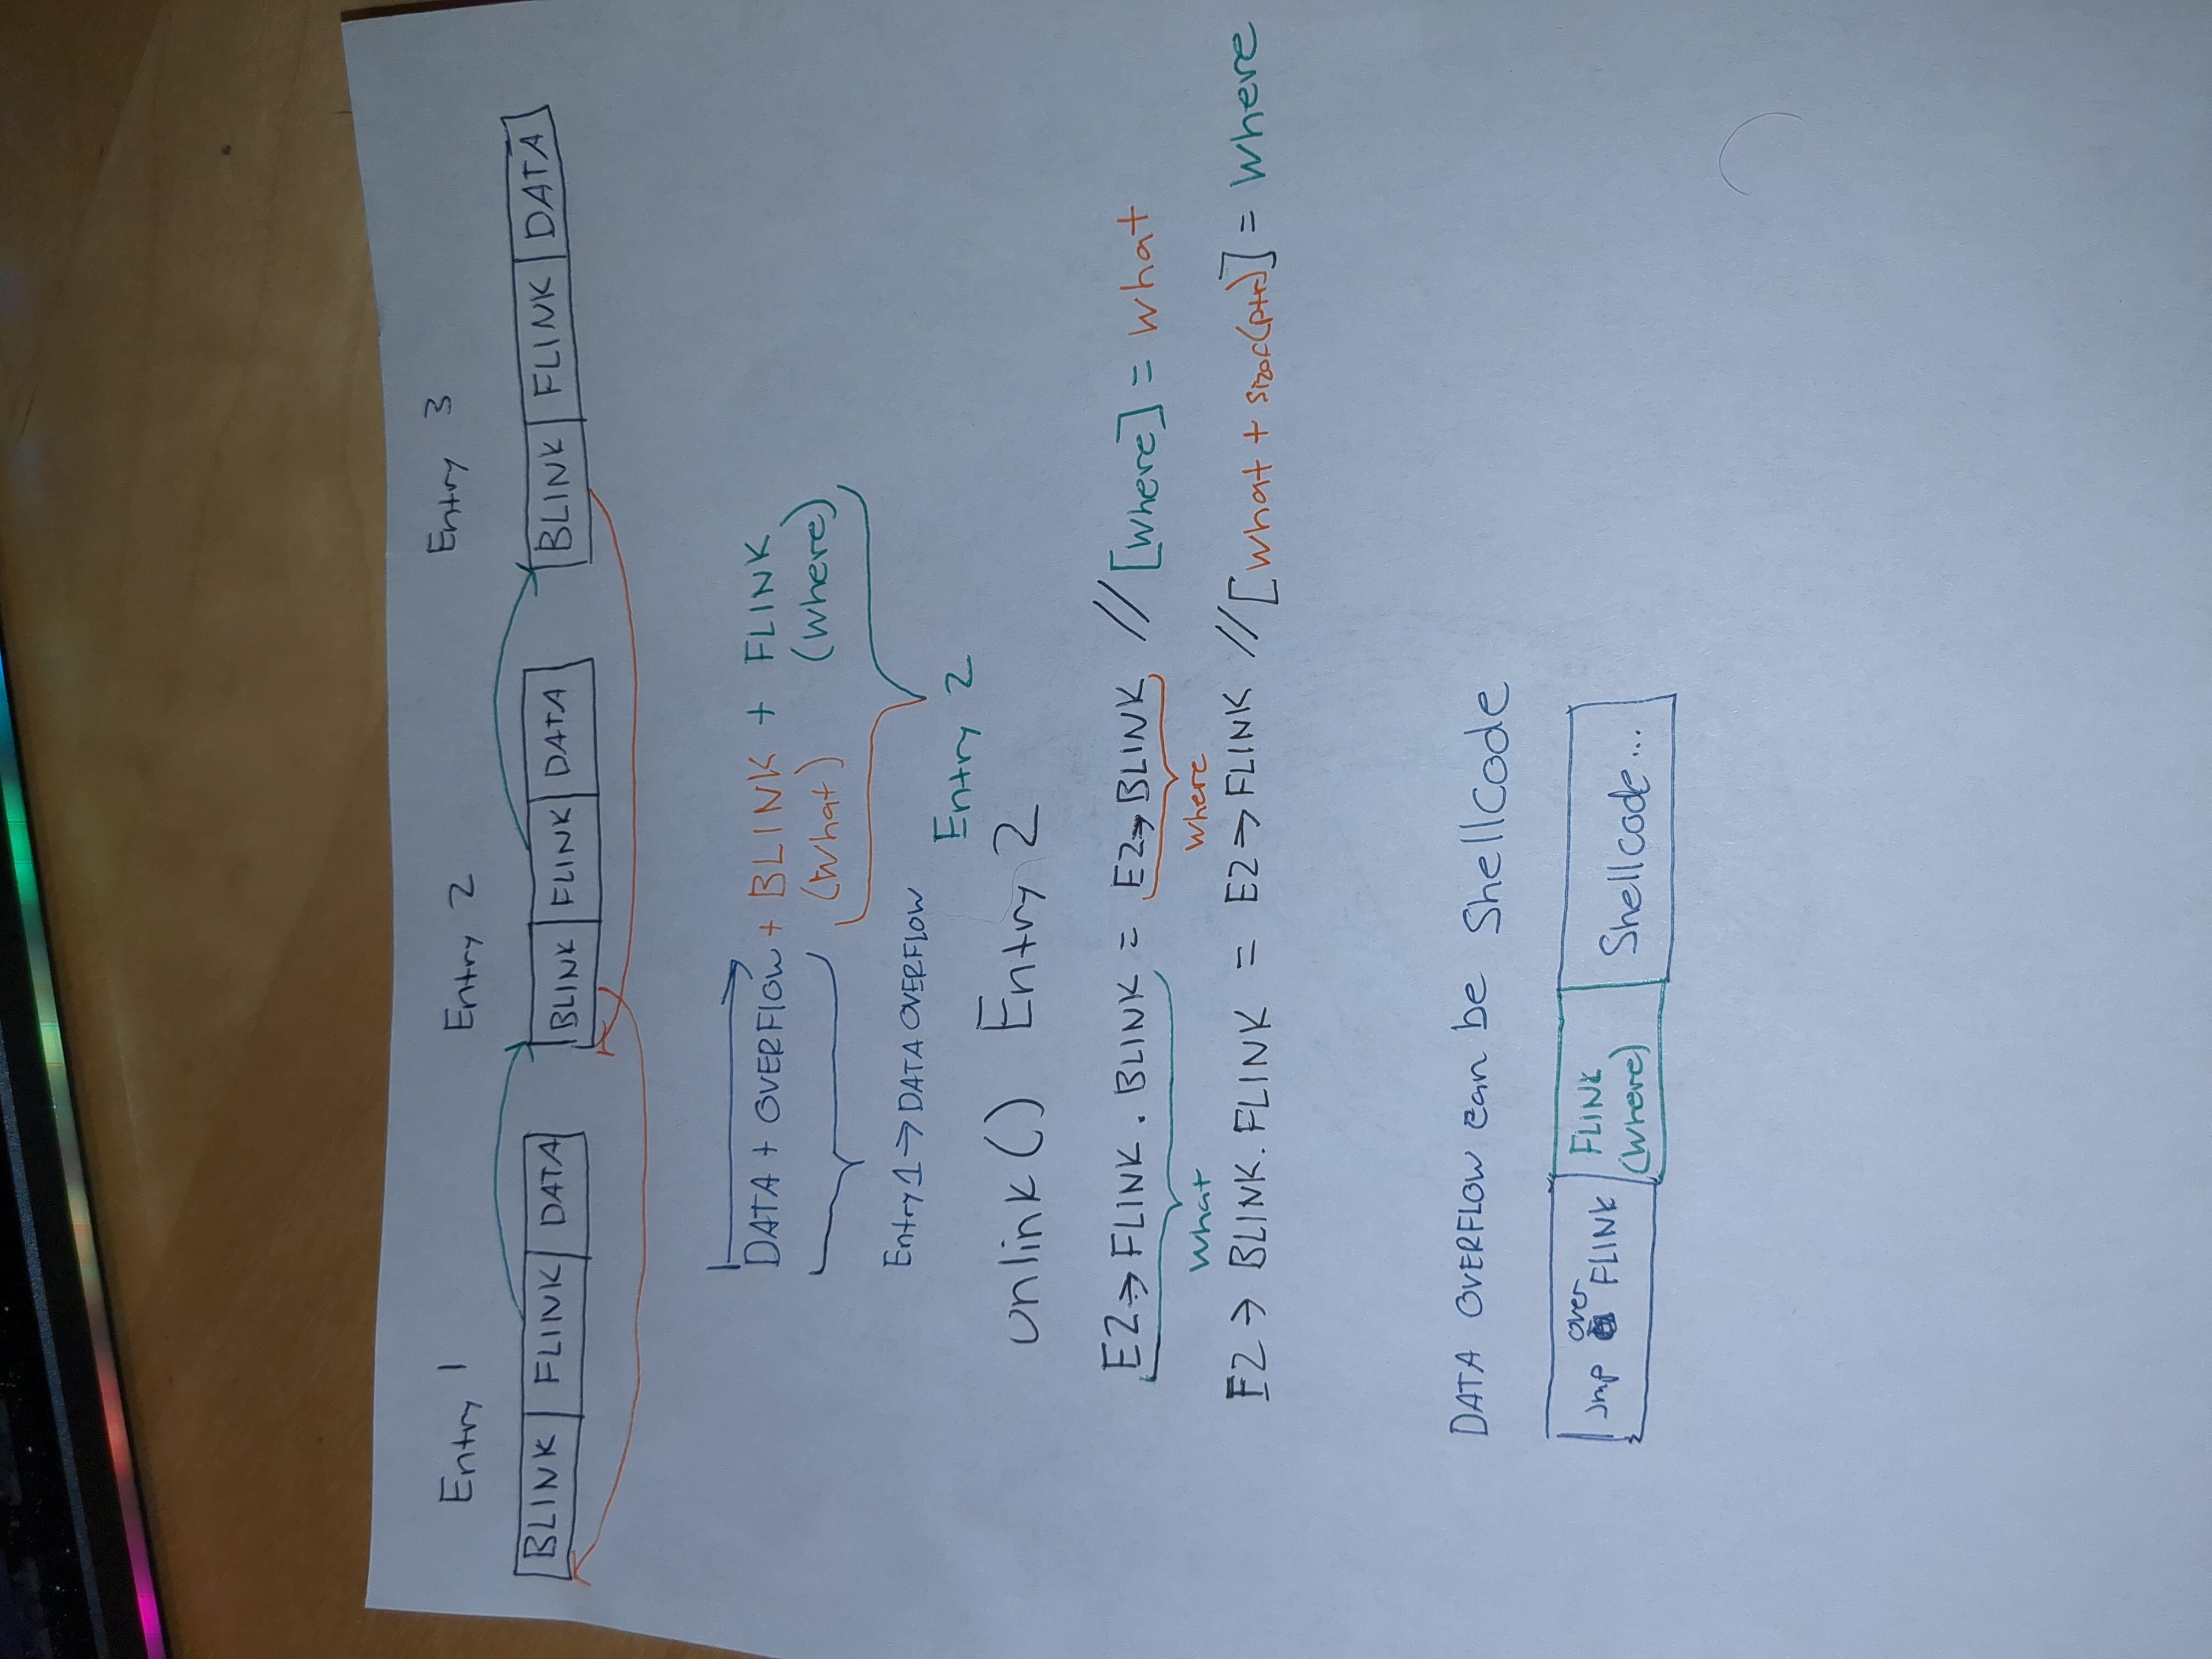 Entry 1 Entry 2 Entry 3
BLINK FLINK DATA BLINK FLINK DATA BLINK FLINK DATA
DATA + OVERFLOW + BLINK + FLINK
(What) (Where)
Entry 1 → DATA OVERFLOW
Entry 2
unlink() Entry 2
E2→FLINK.BLINK = E2→BLINK // [Where] = What
What Where
E2→BLINK.FLINK = E2→FLINK // [What + sizof(ptr)] = Where
DATA OVERFLOW can be ShellCode
Jmp over FLINK FLINK (Where) Shellcode...